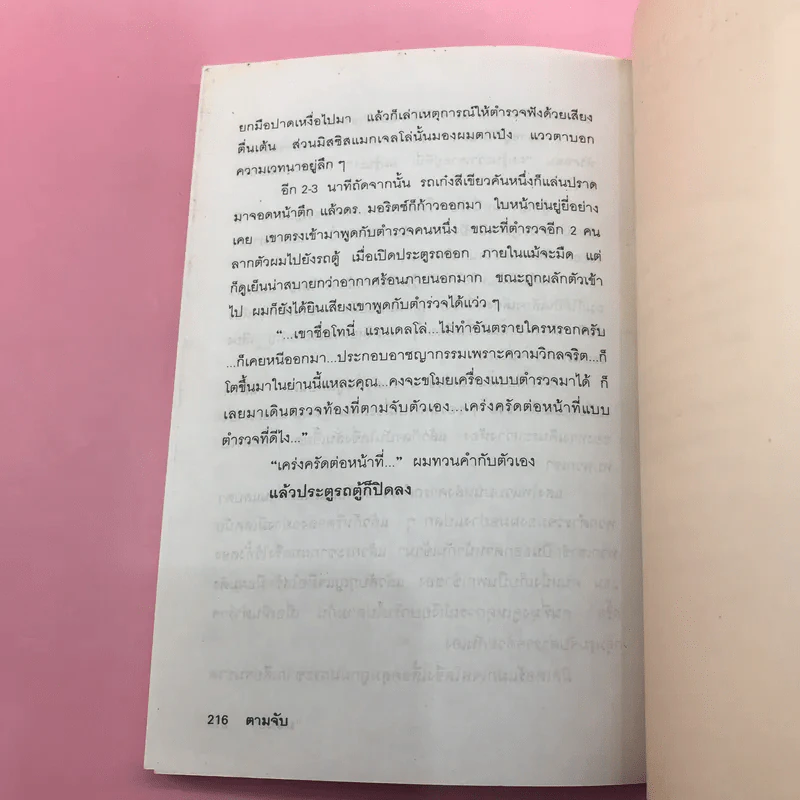 ยกมือปาดเหงื่อไปมา แล้วก็เล่าเหตุการณ์ให้ตำรวจฟังด้วยเสียง
ตื่นเต้น ส่วนมิสซิสแมกเจลโล่นั้นมองผมตาเป๋ง แววตาบอก
ความเวทนาอยู่ลึก ๆ
อีก 2-3 นาทีถัดจากนั้น รถเก๋งสีเขียวคันหนึ่งก็แล่นปราด
มาจอดหน้าตึก แล้วดร. มอริตซ์ก็ก้าวออกมา ใบหน้าย่นยู่ยี่อย่าง
เคย เขาตรงเข้ามาพูดกับตำรวจคนหนึ่ง ขณะที่ตำรวจอีก 2 คน
ลากตัวผมไปยังรถตู้ เมื่อเปิดประตูรถออก ภายในแม้จะมืด แต่
ก็ดูเย็นน่าสบายกว่าอากาศร้อนภายนอกมาก ขณะถูกผลักตัวเข้า
ไป ผมก็ยังได้ยินเสียงเขาพูดกับตำรวจได้แว่ว ๆ
“...เขาชื่อโทนี่ แรนเดลโล่...ไม่ทำอันตรายใครหรอกครับ
...ก็เคยหนีออกมา...ประกอบอาชญากรรมเพราะความวิกลจริต...ก็
โตขึ้นมาในย่านนี้แหละคุณ...คงจะขโมยเครื่องแบบตำรวจมาได้ ก็
เลยมาเดินตรวจท้องที่ตามจับตัวเอง...เคร่งครัดต่อหน้าที่แบบ
ตำรวจที่ดีไง...”
“เคร่งครัดต่อหน้าที่...” ผมทวนคำกับตัวเอง
แล้วประตูรถตู้ก็ปิดลง
216 ตามจับ